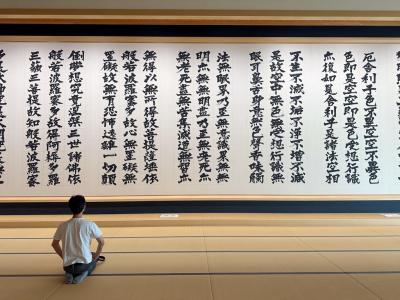 厄舍利子色不異空空不異色
色即是空空即是色受想行識
亦復如是舍利子是諸法空相
不生不滅不垢不淨不增不減
是故空中無色無受想行識無
眼耳鼻舌身意無色聲香味觸
法無眼界乃至無意識界無無
明亦無無明盡乃至無老死亦
無老死盡無苦集滅道無智亦
無得以無所得故菩提薩埵依
般若波羅蜜多故心無罣礙無
罣礙故無有恐怖遠離一切顛
倒夢想究竟涅槃三世諸佛依
般若波羅蜜多故得阿耨多羅
三藐三菩提故知般若波羅蜜